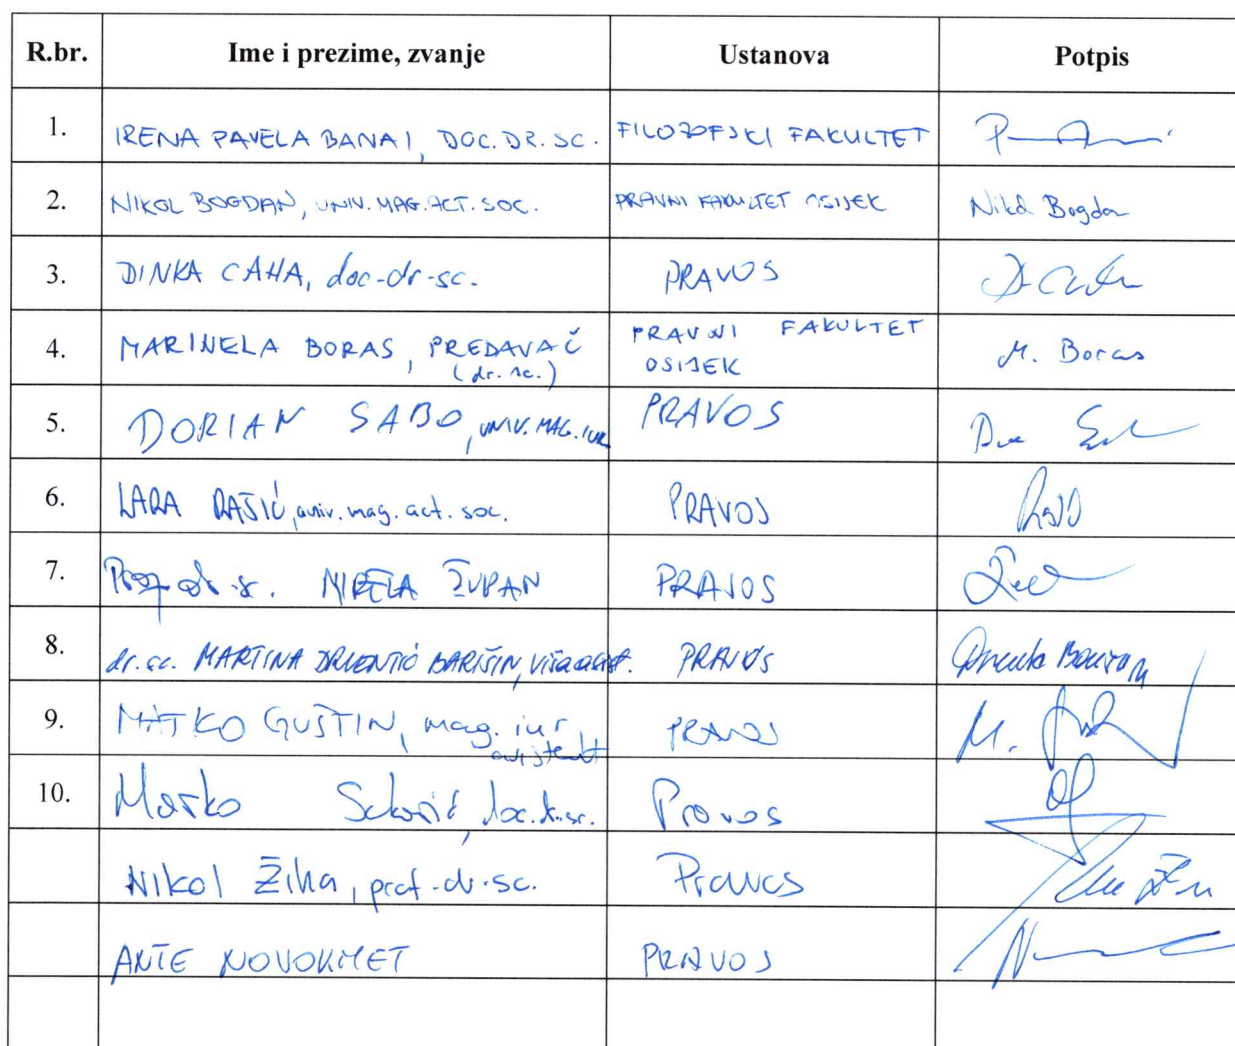 R.br. Ime i prezime, zvanje Ustanova Potpis
1. IRENA PAVELA BANAI, DOC. DR. SC. FILOZOFSKI FAKULTET
2. NIKOL BOGDAN, UNIV. MAG. ACT. SOC. PRAVNI FAKULTET OSIJEK Nikol Bogdan
3. DINKA CAHA, doc-dr-sc. PRAVOS
4. MARINELA BORAS, PREDAVAČ PRAVNI FAKULTET M. Boras
(dr. sc.) OSIJEK
5. DORIAN SABO, UNIV. MAG. IUR PRAVOS
6. LARA RAŠIĆ, univ. mag. act. soc. PRAVOS
7. Prof. dr. sc. MIRELA ŽUPAN PRAVOS
8. dr. sc. MARTINA DRVENTIĆ BARIŠIN, viša asist. PRAVOS
9. MATKO GUŠTIN, mag. iur PRAVOS M.
asistent
10. Marko doc. dr. sc. Pravos
Nikol Žiha, prof. dr. sc. Pravos
ANTE NOVOKMET PRAVOS